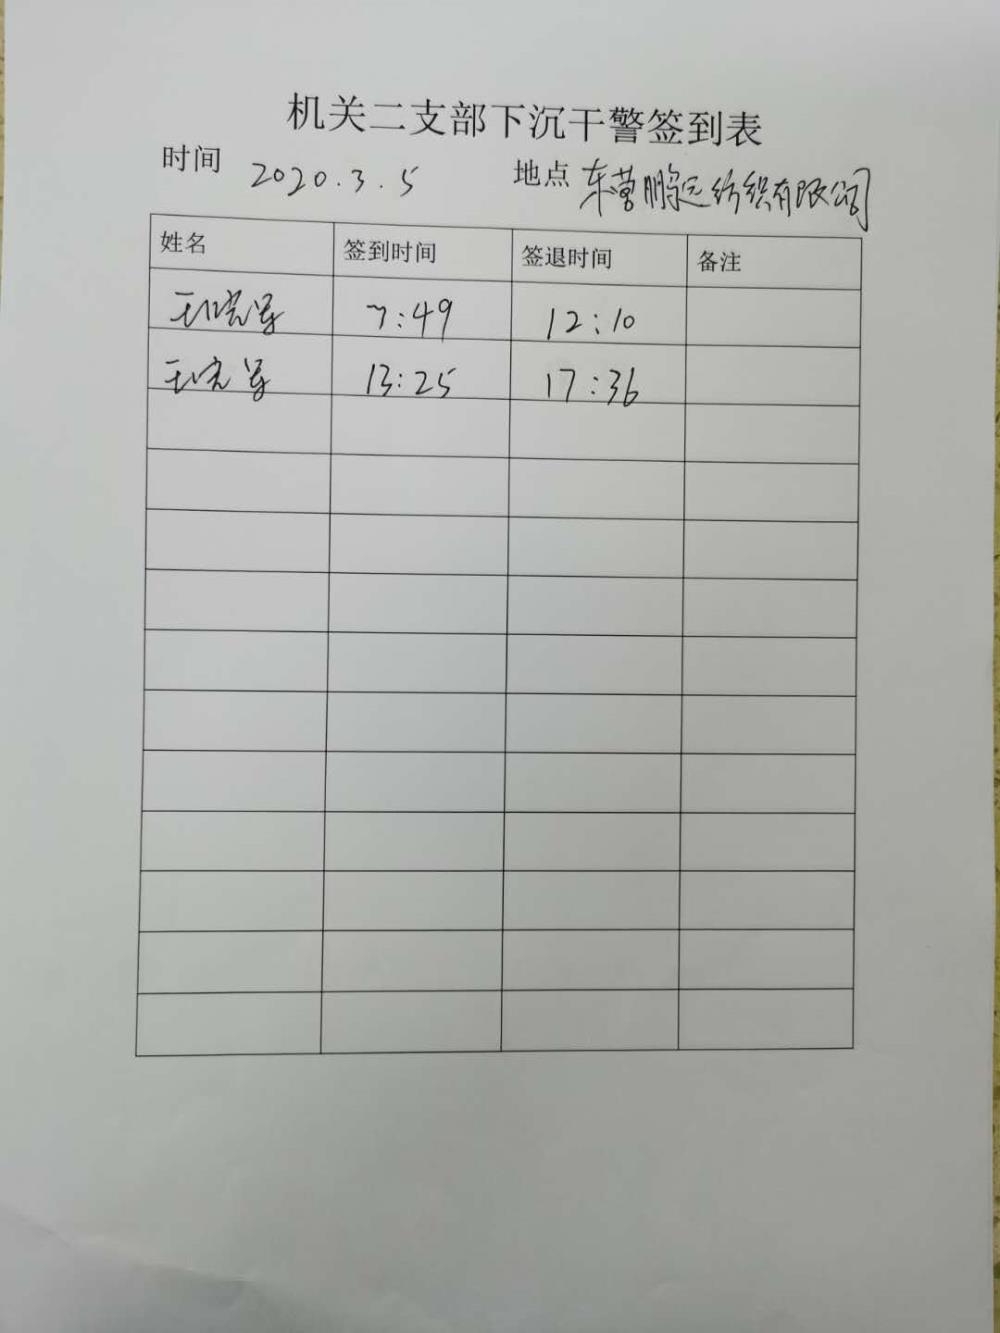 机关二支部下沉干警签到表
时间 2020.3.5 地点 东营鹏远纺织有限公司
姓名 签到时间 签退时间 备注
王晓军 7:49 12:10
王晓军 13:25 17:36